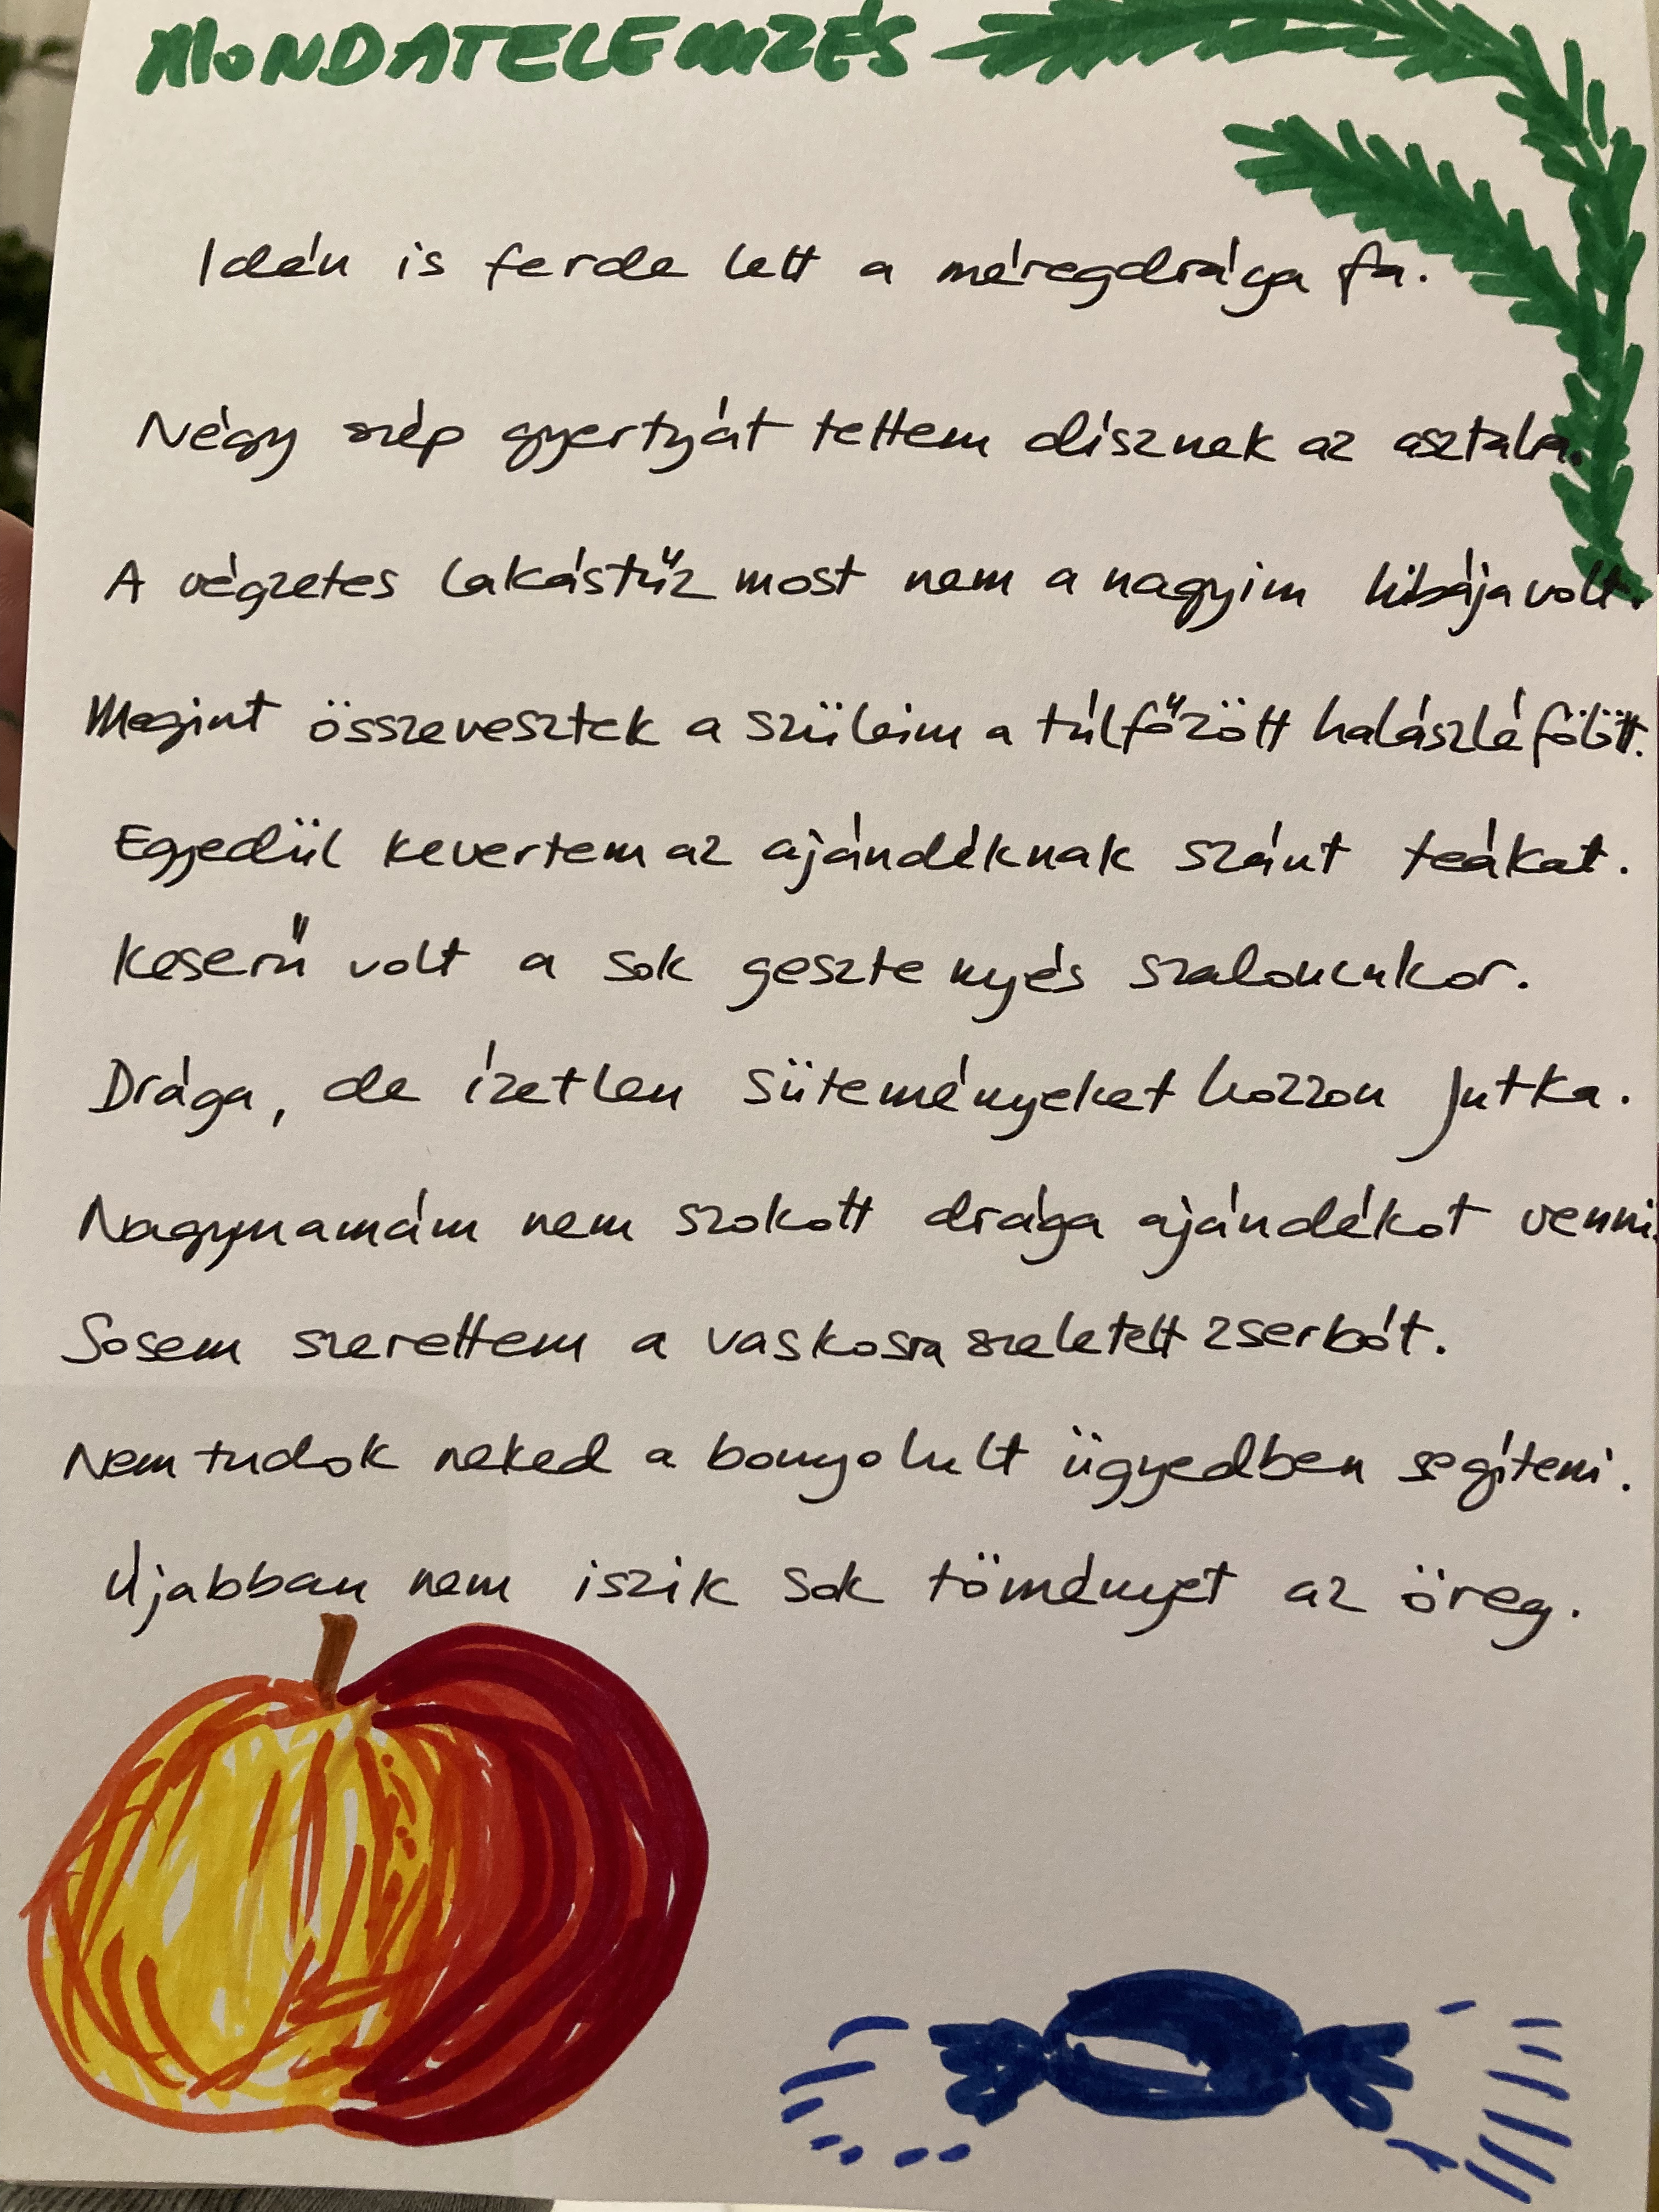 MONDATELEMZÉS
Idén is ferde lett a méregdrága fa.
Négy szép gyertyát tettem dísznek az asztalra.
A végzetes lakástűz most nem a nagyim hibája volt.
Megint összevesztek a szüleim a túlfőzött halászlé fölött.
Egyedül kevertem az ajándéknak szánt teákat.
Keserű volt a sok gesztenyés szaloncukor.
Drága, de ízetlen süteményeket hozzon Jutka.
Nagymamám nem szokott drága ajándékot venni.
Sosem szerettem a vaskosra szeletelt zserbót.
Nem tudok neked a bonyolult ügyedben segíteni.
Újabban nem iszik sok töményet az öreg.